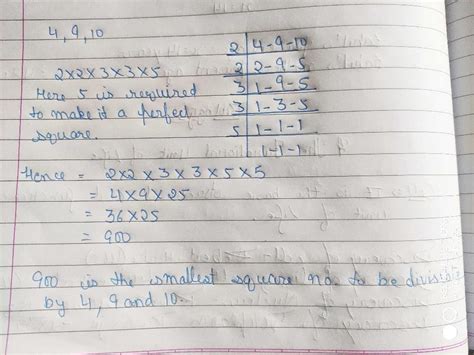 4, 9, 10
2 | 4-9-10
2 | 2-9-5
3 | 1-9-5
3 | 1-3-5
5 | 1-1-1
1-1-1
2×2×3×3×5
Here 5 is required
to make it a perfect
square.
Hence = 2×2×3×3×5×5
= 4×9×25
= 36×25
= 900
900 is the smallest square no. to be divisible
by 4, 9 and 10.